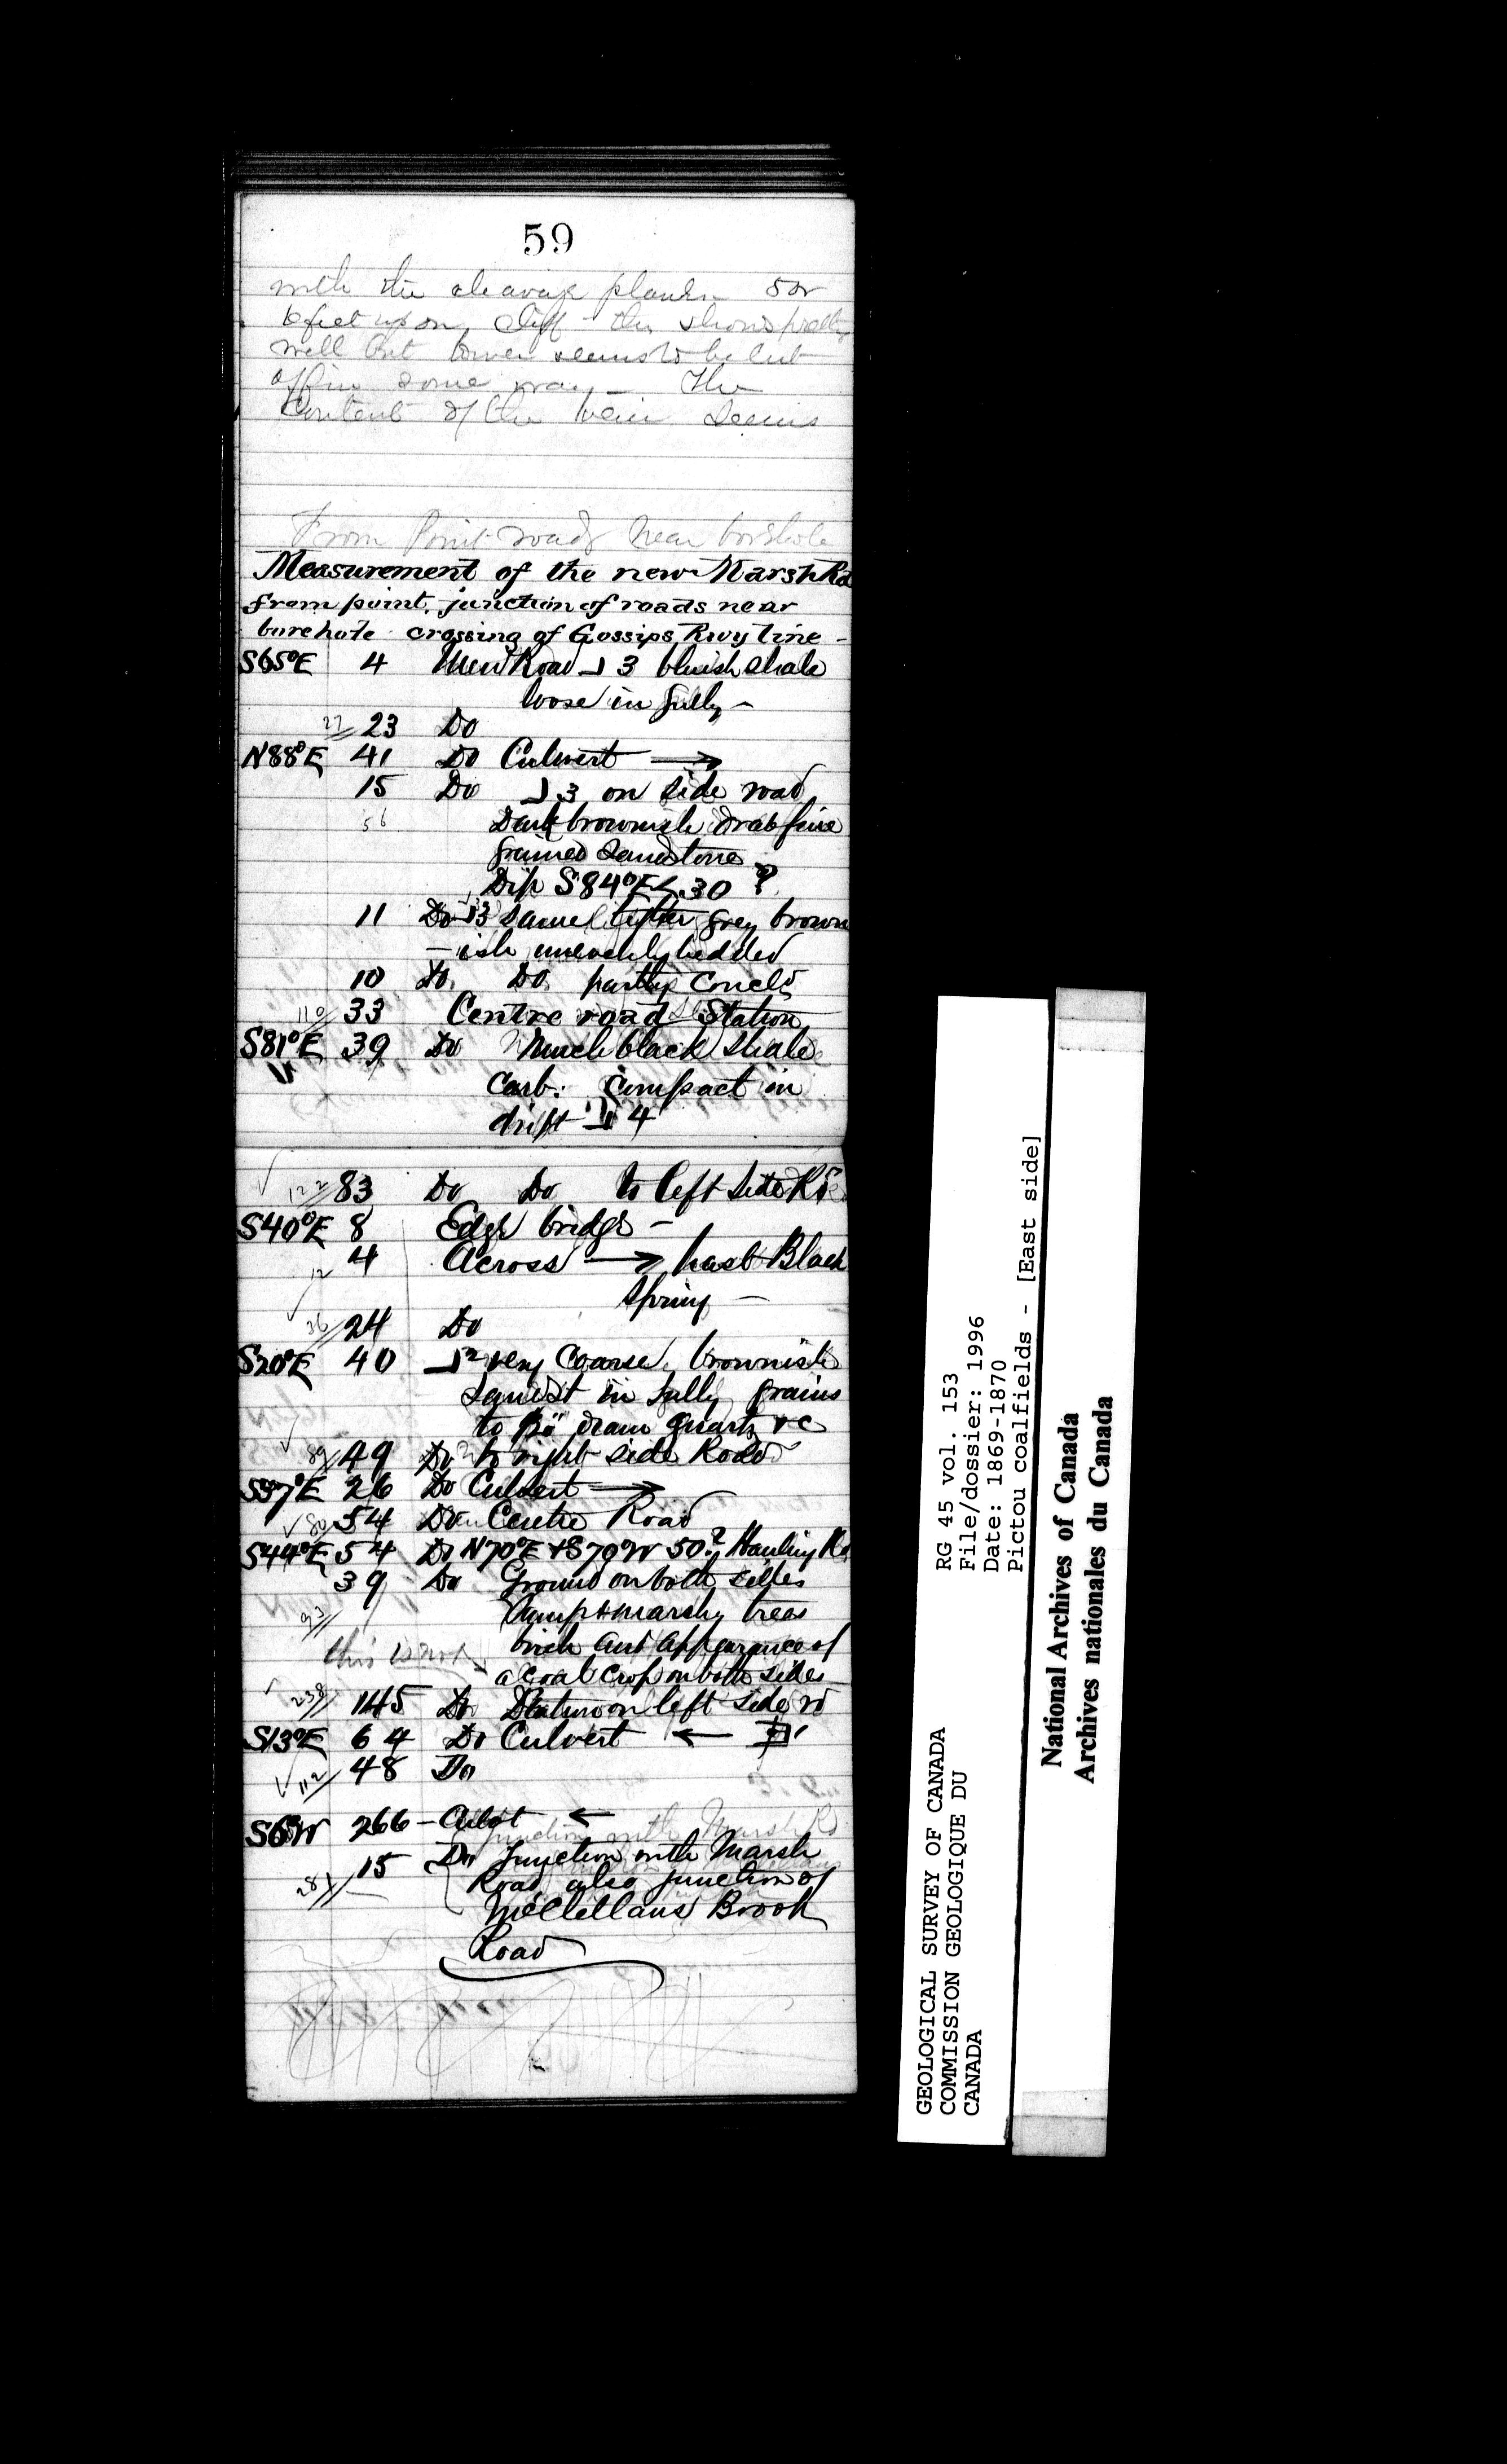 59
with the cleavage planes 5 or
6 feet up on cliff this shows pretty
well but lower seems to be cut
off in some way – The
Content of the vein seems
From Point road near borehole
Measurement of the new Marsh Rd
from point, junction of roads near
borehole crossing of Gossips Rwy line –
S65°E 4 New Road 3 bluish shale
loose in gully –
27 23 Do
N88°E 41 Do Culvert →
15 Do 3 on side road
56 Dark brownish drab fine
grained Sandstone
Dip S84°E < 30 ?
11 Do 3 same lighter grey brown
– ish unevenly bedded
10 Do. Do partly conceld
110 33 Centre road Station
S81°E 39 Do Much black shale
Carb: compact in
drift 4
122 83 Do Do to left side Rd
S40°E 8 Edge bridge –
12 4 Across → past Black
Spring –
36 24 Do
S20°E 40 2 very coarse, brownish
Sandst in gully grains
to diam quartz &c
89 49 Do to right side Road
S37°E 26 Do Culvert →
80 54 Do Centre Road
S44°E 54 Do N70°E & S70°W 50? Hauling Rd
39 Do Ground on both sides
93 damp & marshy trees
this is not birch and appearance of
a coal crop on both sides
238 145 Do Station on left side rd
S13°E 64 Do Culvert ←
112 48 Do
S6°W 266 – Culvt ←
junction with Marsh Rd
281 15 Do Junction with Marsh
Road also junction of
McLellans Brook
Road
GEOLOGICAL SURVEY OF CANADA
COMMISSION GEOLOGIQUE DU
CANADA
RG 45 vol. 153
File/dossier: 1996
Date: 1869-1870
Pictou coalfields - [East side]
National Archives of Canada
Archives nationales du Canada